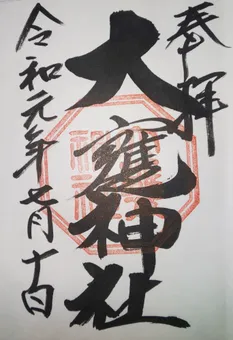 奉拝
大甕神社
令和元年七月十日